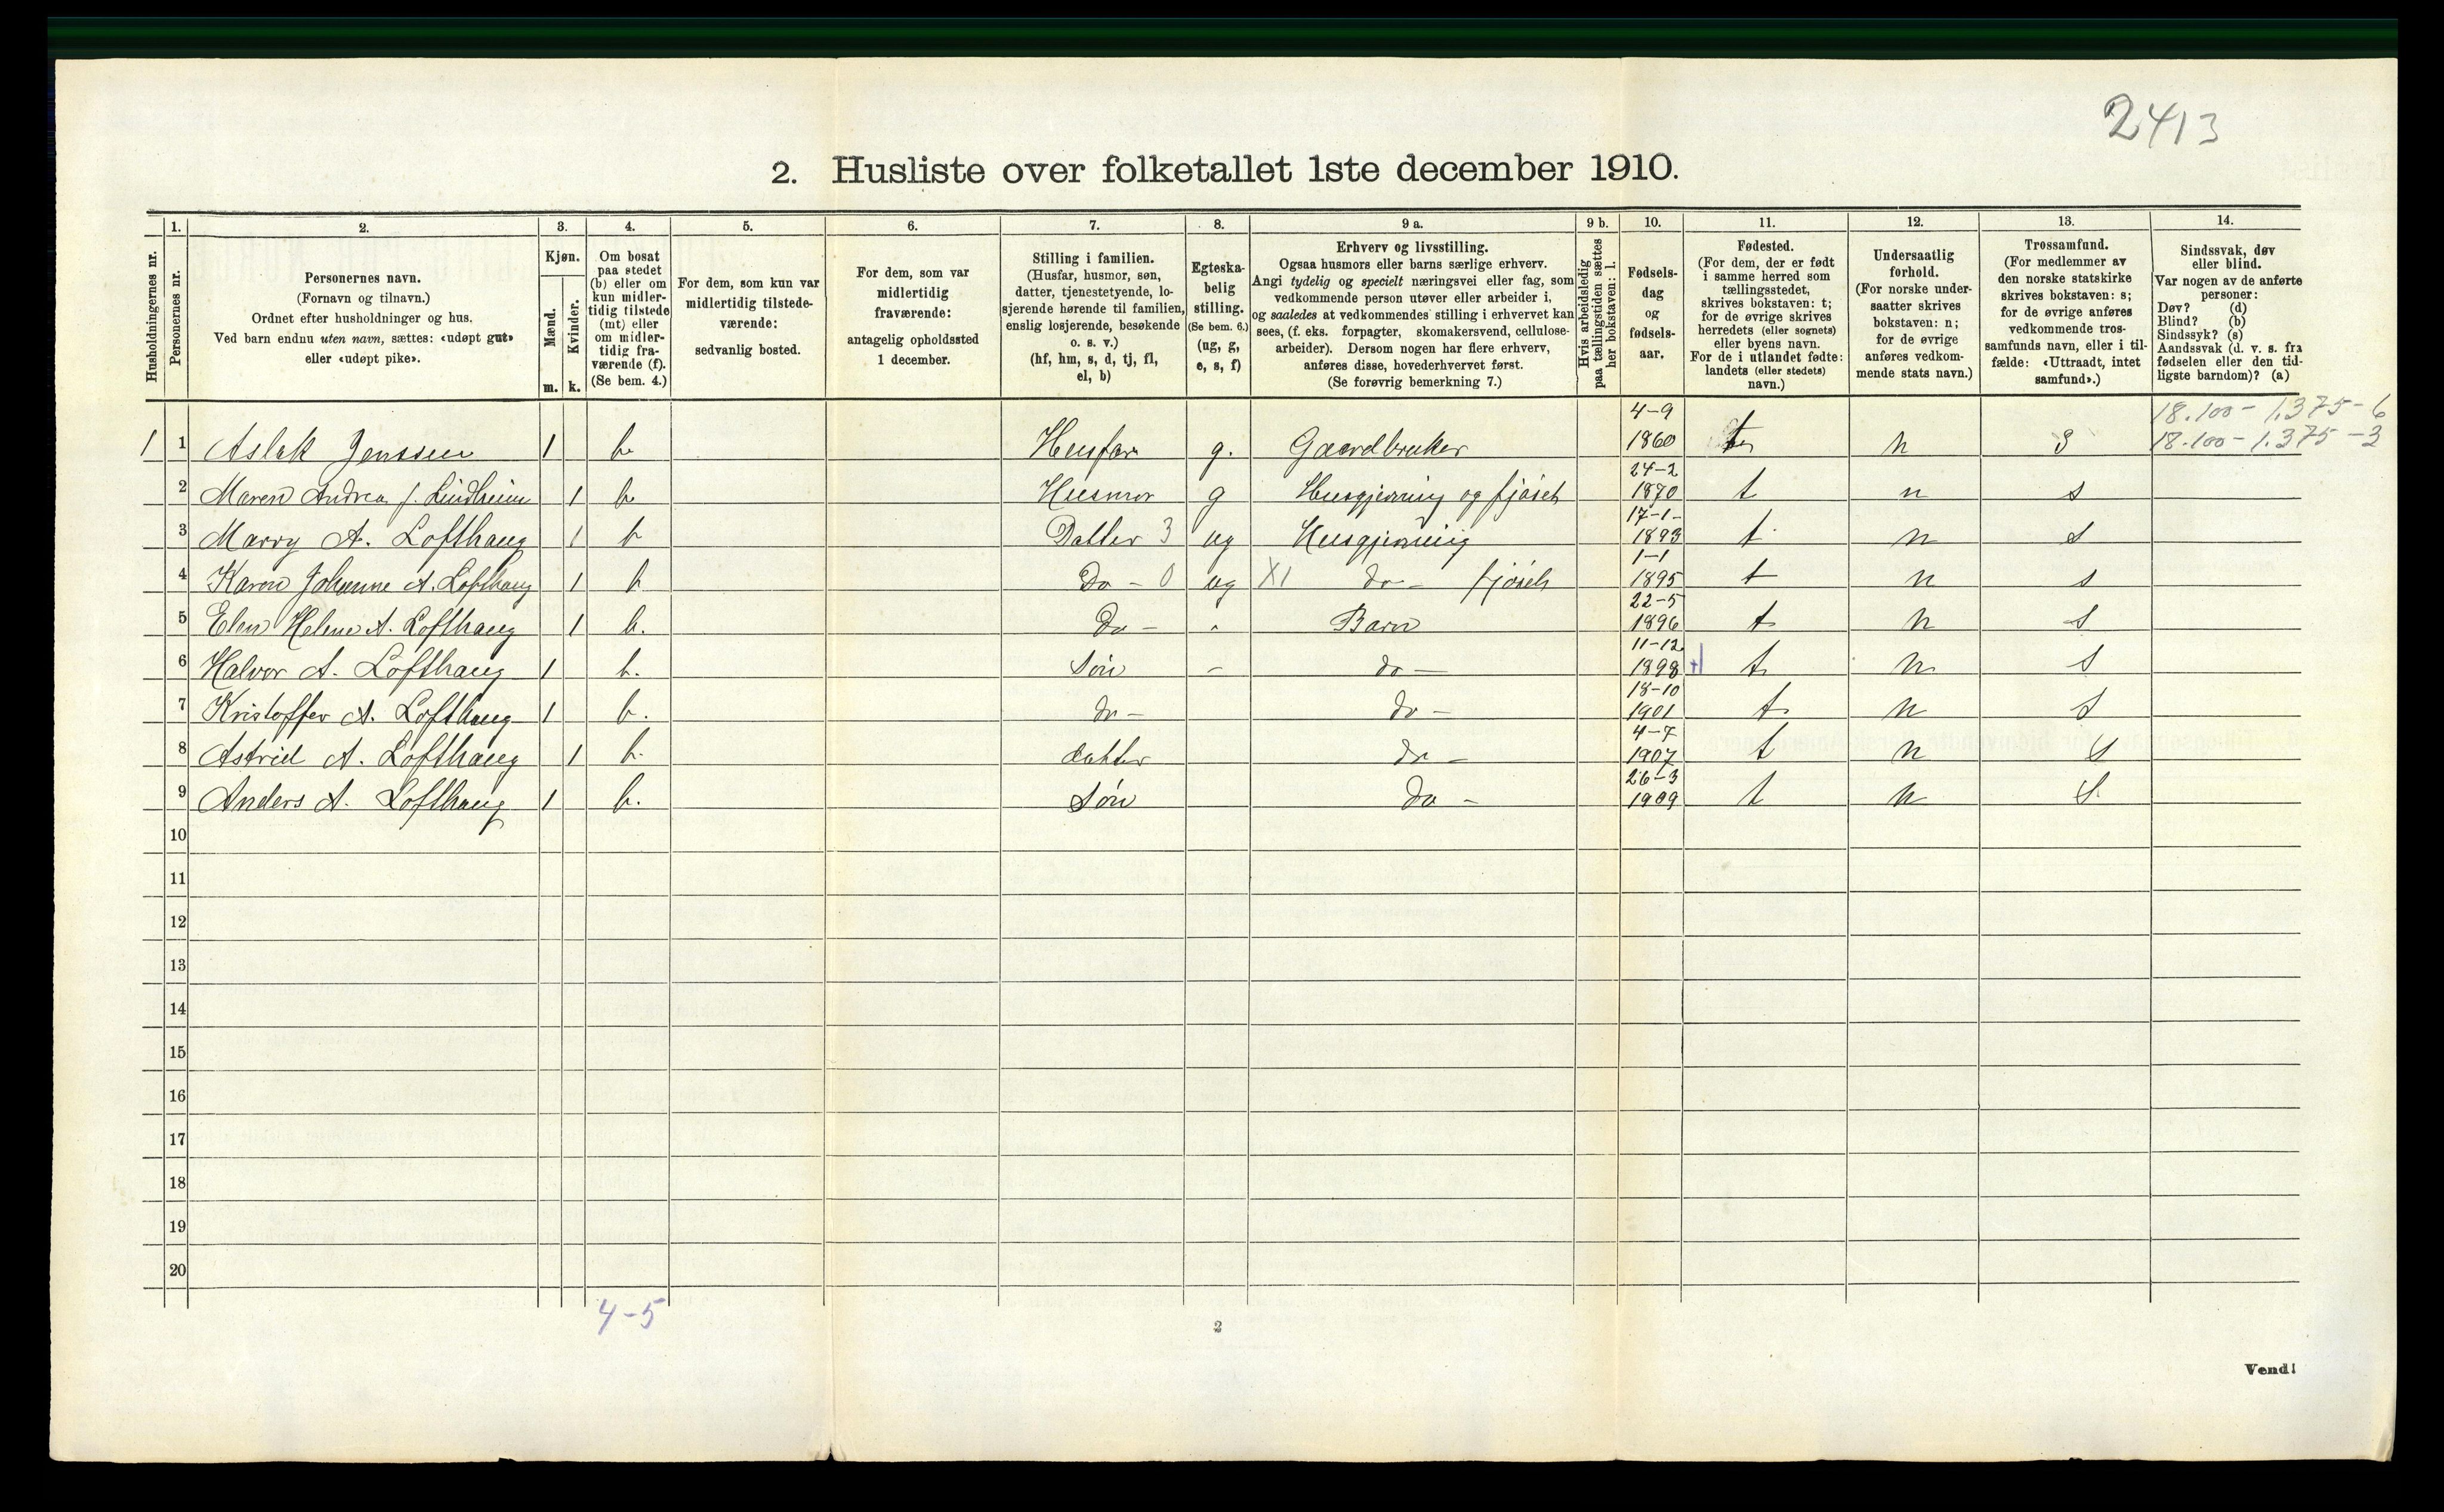 2413
2. Husliste over folketallet 1ste december 1910.
Husholdningernes nr.
1. Personernes nr.
2. Personernes navn.
(Fornavn og tilnavn.)
Ordnet efter husholdninger og hus.
Ved barn endnu uten navn, sættes: «udøpt gut»
eller «udøpt pike».
3. Kjøn.
Mænd. m.
Kvinder. k.
4. Om bosat
paa stedet
(b) eller om
kun midler-
tidig tilstede
(mt) eller
om midler-
tidig fra-
værende (f).
(Se bem. 4.)
5. For dem, som kun var
midlertidig tilstede-
værende:
sedvanlig bosted.
6. For dem, som var
midlertidig
fraværende:
antagelig opholdssted
1 december.
7. Stilling i familien.
(Husfar, husmor, søn,
datter, tjenestetyende, lo-
sjerende hørende til familien,
enslig losjerende, besøkende
o. s. v.)
(hf, hm, s, d, tj, fl,
el, b)
8. Egteska-
belig
stilling.
(Se bem. 6.)
(ug, g,
e, s, f)
9 a. Erhverv og livsstilling.
Ogsaa husmors eller barns særlige erhverv.
Angi tydelig og specielt næringsvei eller fag, som
vedkommende person utøver eller arbeider i,
og saaledes at vedkommendes stilling i erhvervet kan
sees, (f. eks. forpagter, skomakersvend, cellulose-
arbeider). Dersom nogen har flere erhverv,
anføres disse, hovederhvervet først.
(Se forøvrig bemerkning 7.)
9 b. Hvis arbeidsledig
paa tællingstiden sættes
her bokstaven: l.
10. Fødsels-
dag
og
fødsels-
aar.
11. Fødested.
(For dem, der er født
i samme herred som
tællingsstedet,
skrives bokstaven: t;
for de øvrige skrives
herredets (eller sognets)
eller byens navn.
For de i utlandet fødte:
landets (eller stedets)
navn.)
12. Undersaatlig
forhold.
(For norske under-
saatter skrives
bokstaven: n;
for de øvrige
anføres vedkom-
mende stats navn.)
13. Trossamfund.
(For medlemmer av
den norske statskirke
skrives bokstaven: s;
for de øvrige anføres
vedkommende tros-
samfunds navn, eller i til-
fælde: «Uttraadt, intet
samfund».)
14. Sindssvak, døv
eller blind.
Var nogen av de anførte
personer:
Døv? (d)
Blind? (b)
Sindssyk? (s)
Aandssvak (d. v. s. fra
fødselen eller den tid-
ligste barndom)? (a)
18.100 - 1.375 - 6
1 1 Aslak Jenssen 1 b Husfar g. Gaardbruker 4-9 1860 t n S 18.100 - 1.375 - 3
2 Maren Andrea f. Lindheim 1 b Husmor g Husgjerning og fjøset 24-2 1870 t n s
3 Marry A. Lofthaug 1 b Datter 3 ug Husgjerning 17-1- 1893 t n s
4 Karen Johanne A. Lofthaug 1 b Do - 0 ug X1 do - fjøset 1-1 1895 t n s
5 Elen Helene A. Lofthaug 1 b. Do - " Barn 22-5 1896 t n s
6 Halvor A. Lofthaug 1 b. Søn - do - 11-12 1898 t n s
7 Kristoffer A. Lofthaug 1 b. do - do - 18-10 1901 t n s
8 Astrid A. Lofthaug 1 b. datter do - 4-7 1907 t n s
9 Anders A. Lofthaug 1 b. Søn do - 26-3 1909 t n s
10
11
12
13
14
15
16
17
18
19
20
4-5
2
Vend!